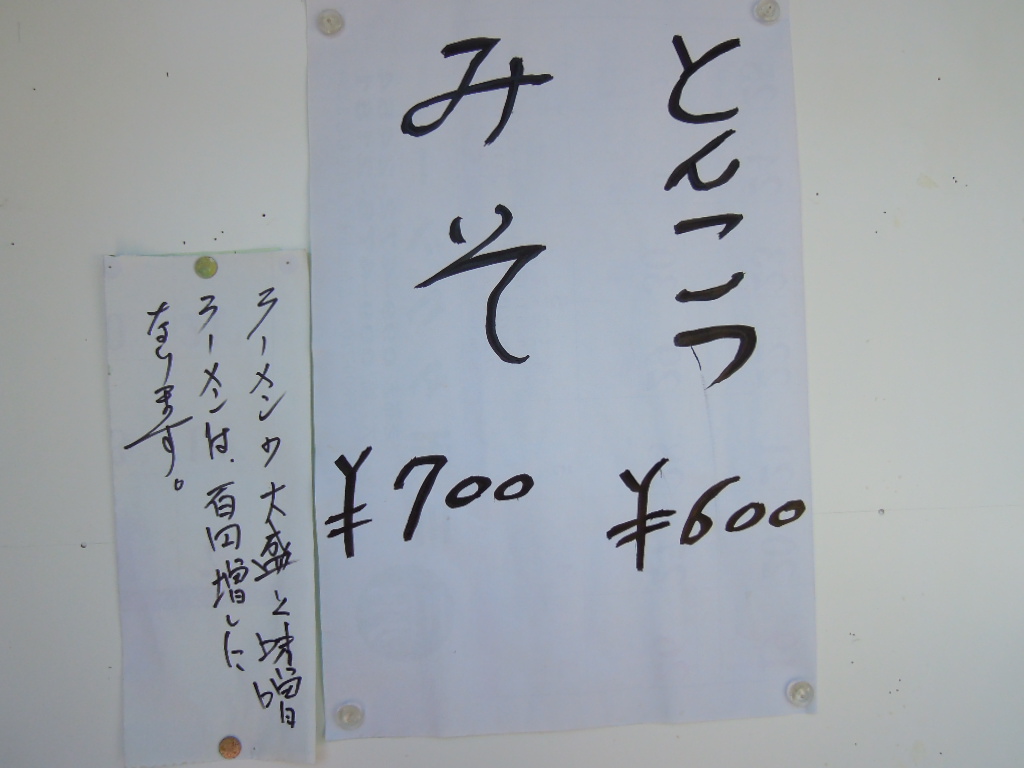 とんこつ
¥600
みそ
¥700
ラーメンの大盛と味噌
ラーメンは、百円増しに
なります。